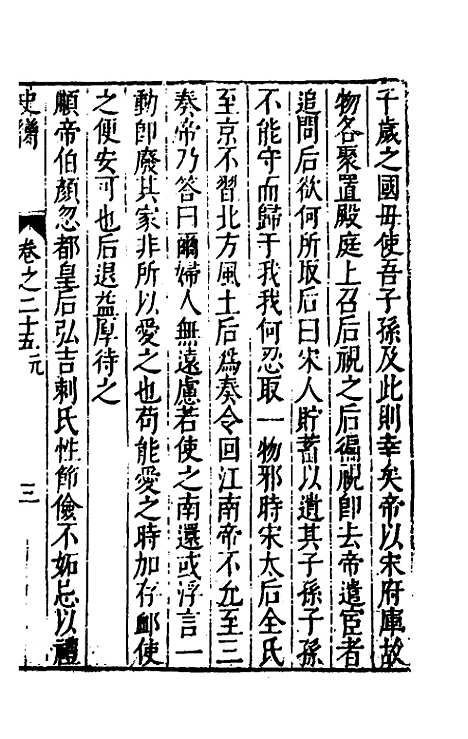 千歲之國毋使吾子孫及此則幸矣帝以宋府庫故
物各聚置殿庭上召后視之后徧視即去帝遣宦者
追問后欲何所取后曰宋人貯蓄以遺其子孫子孫
不能守而歸于我我何忍取一物邪時宋太后全氏
至京不習北方風土后爲奏令回江南帝不允至三
奏帝乃答曰爾婦人無遠慮若使之南還或浮言一
動即廢其家非所以愛之也苟能愛之時加存卹使
之便安可也后退益厚待之
順帝伯顏忽都皇后弘吉剌氏性節儉不妬忌以禮
史
卷之二十五元
三